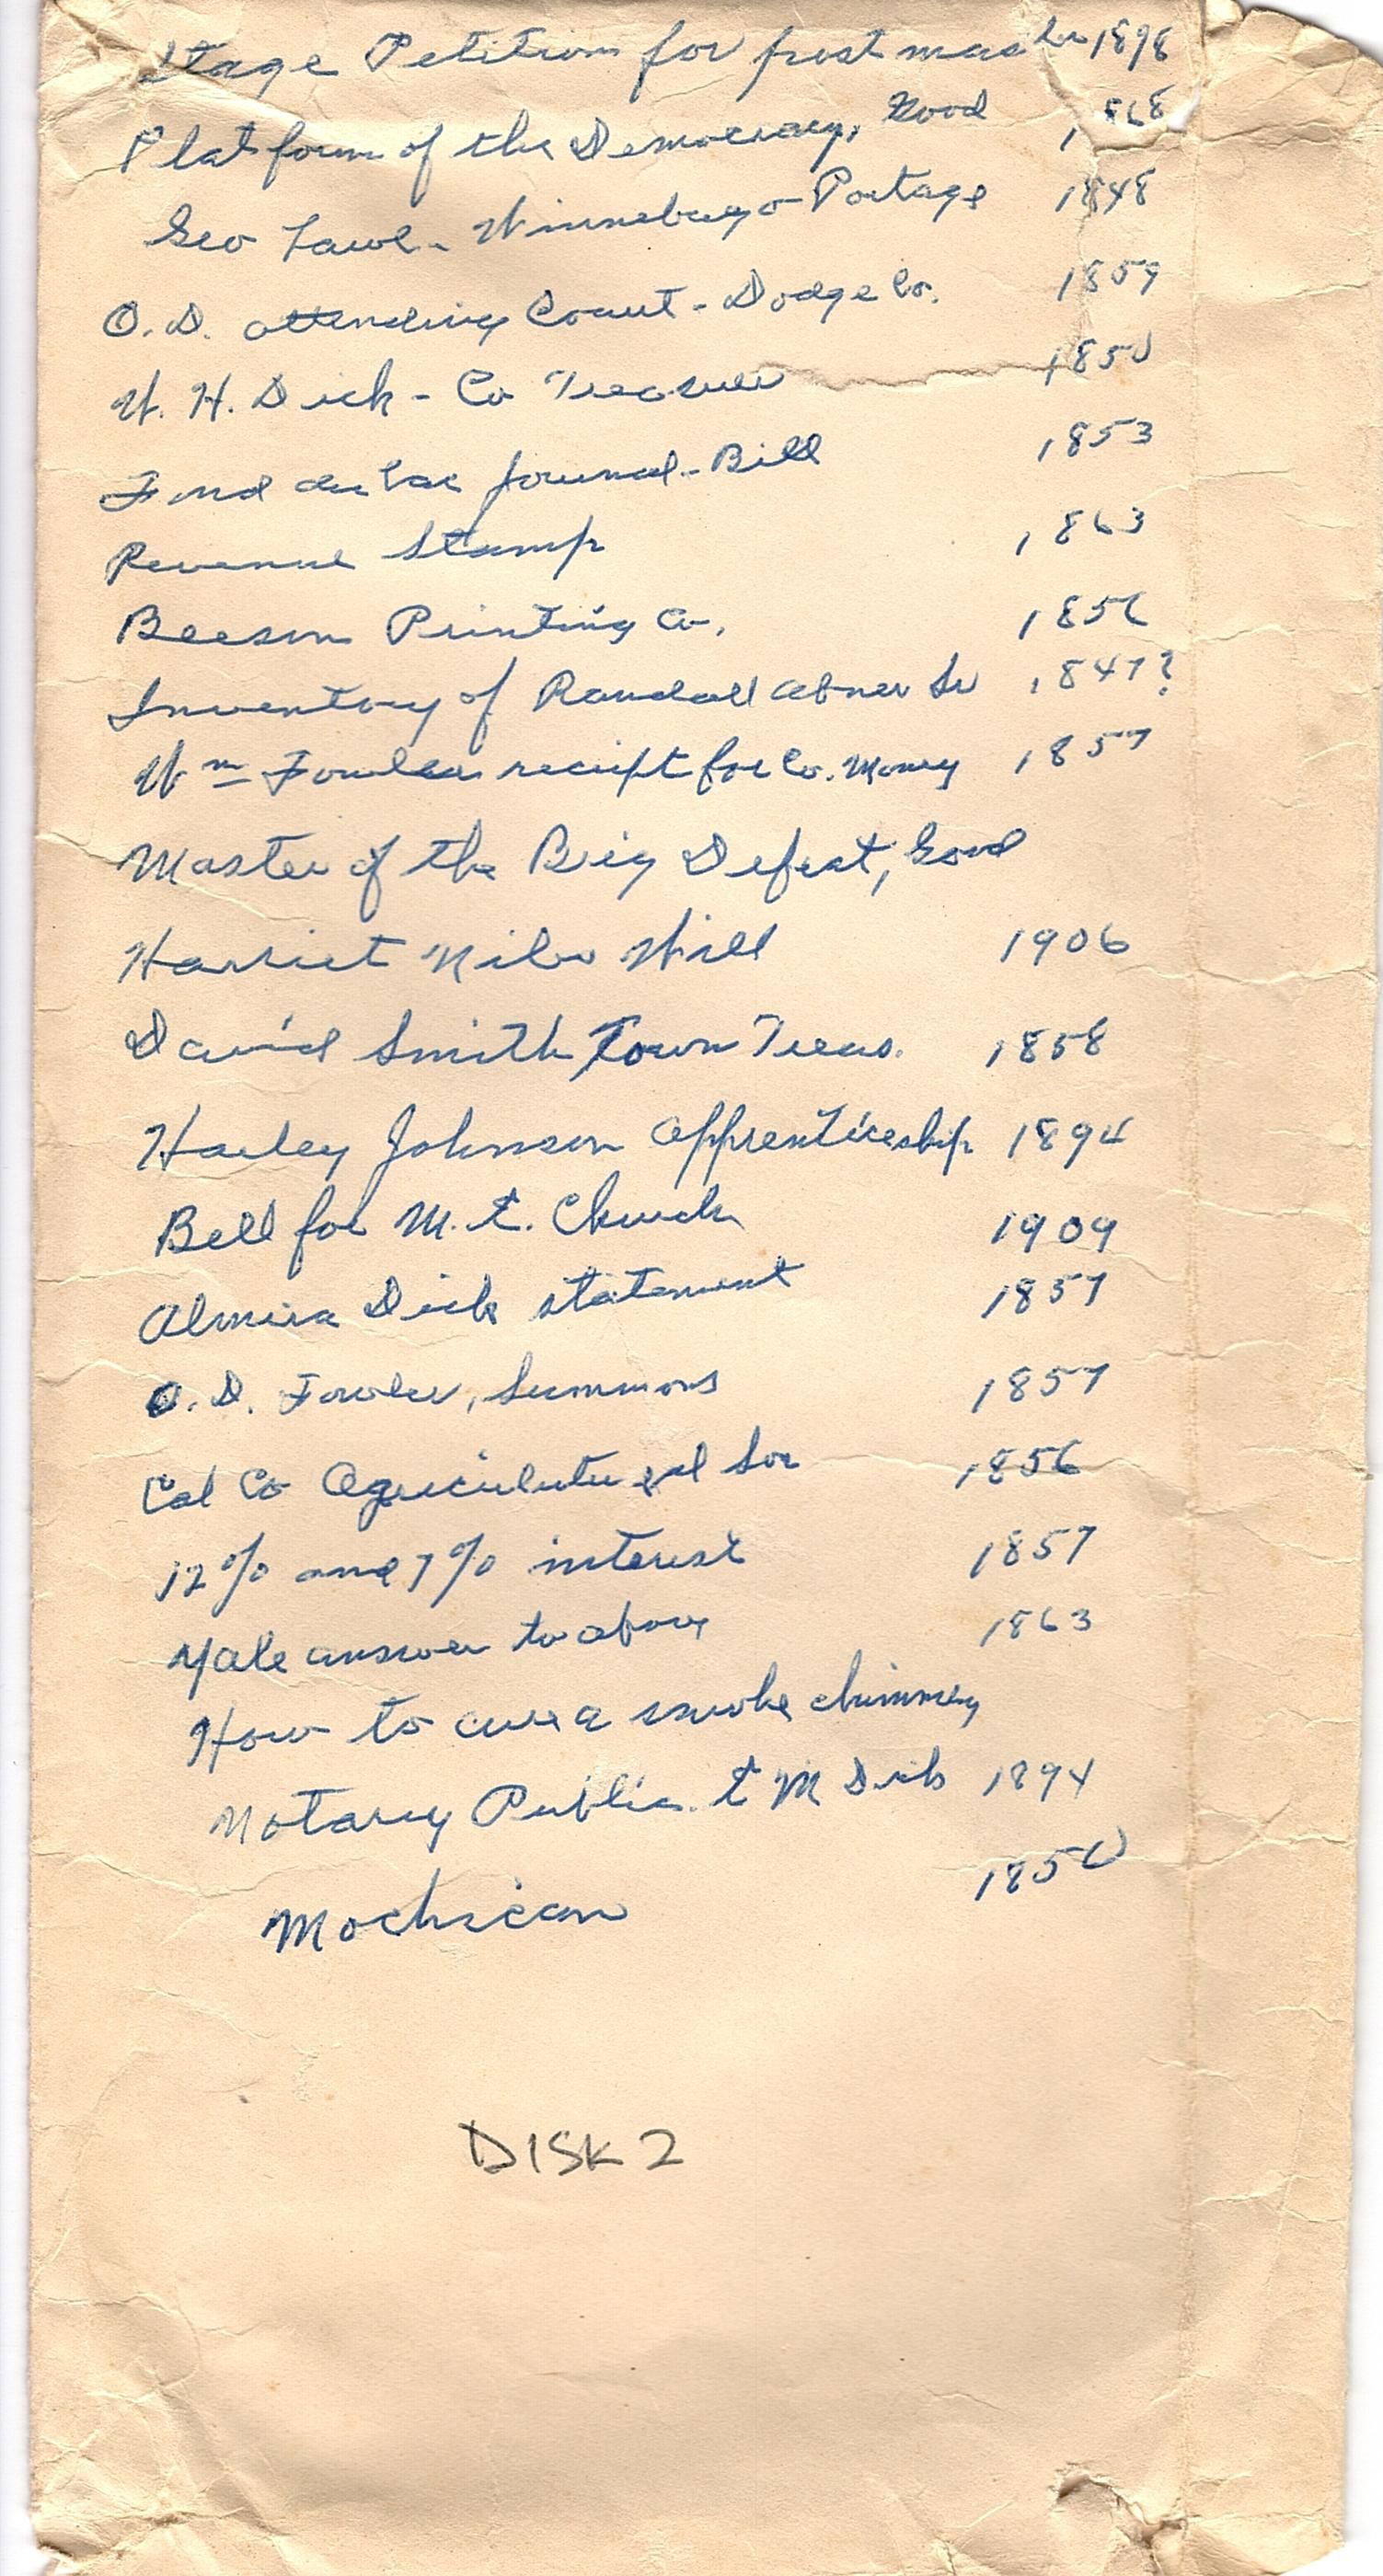 Stage Petition for post master 1898
Platform of the Democracy, Good 1868
Geo Lawe - Winnebago - Portage 1848
O. D. attending Court - Dodge Co. 1859
W. H. Dick - Co Treasurer 1850
Fond du Lac Journal - Bill 1853
Revenue Stamp 1863
Beeson Printing Co. 1856
Inventory of Randall Abner Sr 1847?
Wm Fowler receipt for Co. Money 1857
Master of the Big Defeat, Good
Harriet Niles Will 1906
David Smith Town Treas. 1858
Harley Johnson Apprenticeship 1894
Bell for M. E. Church 1909
Almira Dick statement 1857
O. D. Fowler, Summons 1857
Cal Co Agricultural Soc 1856
12% and 7% interest 1857
Yale answer to above 1863
How to cure a smoke chimney
Notary Public E M Dick 1894
Mochican 1850
DISK 2